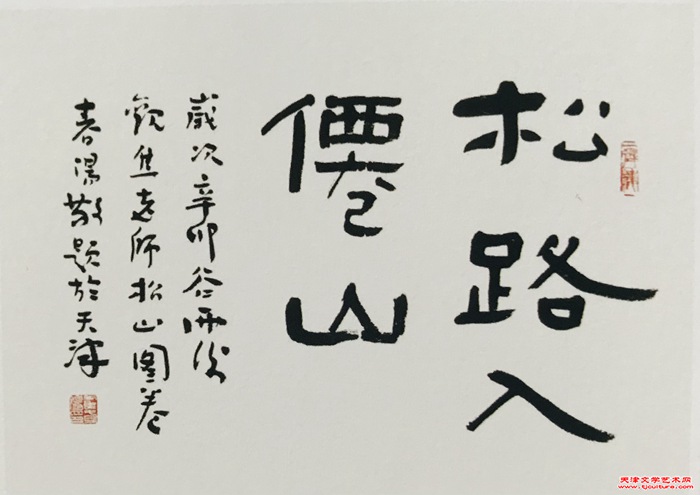 松路入
僊山
歲次辛卯谷雨後
觀焦老师松山圖卷
春湯敬題於天津
天津文学艺术网
www.tjculture.com